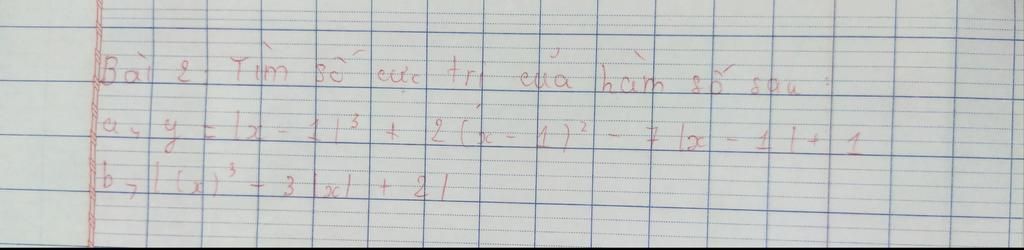 Bài 2, Tìm số cực trị của hàm số sau:
a, y = |x - 1|³ + 2(x - 1)² - 7|x - 1| + 1
b, |(x)³ - 3|x| + 2|